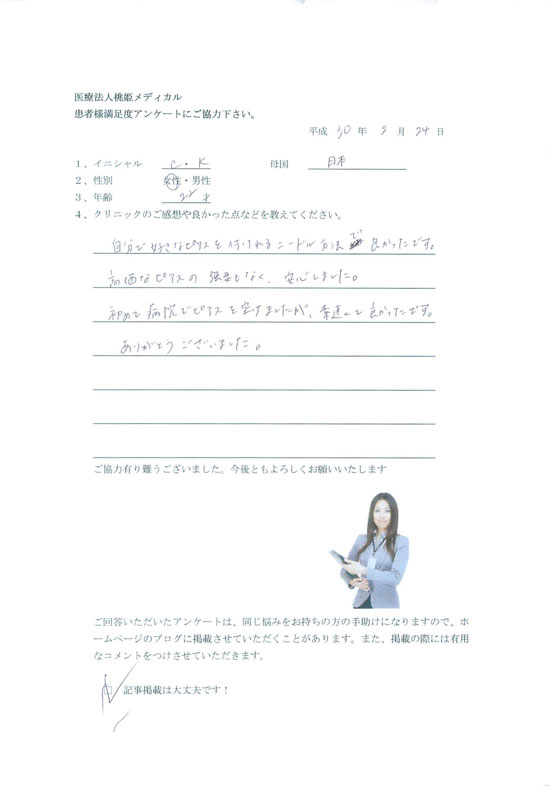 医療法人桃姫メディカル
患者様満足度アンケートにご協力下さい。
平成 30 年 2 月 24 日
1、イニシャル C・K 母国 日本
2、性別 女性・男性
3、年齢 才
4、クリニックのご感想や良かった点などを教えてください。
自分で好きなピアスを付けれるニードル方法で良かったです。
高価なピアスの強要もなく、安心しました。
初めて病院でピアスを空けましたが、素速くて良かったです。
ありがとうございました。
ご協力有り難うございました。今後ともよろしくお願いいたします
ご回答いただいたアンケートは、同じ悩みをお持ちの方の手助けになりますので、ホ
ームページのブログに掲載させていただくことがあります。また、掲載の際には有用
なコメントをつけさせていただきます。
□ 記事掲載は大丈夫です！